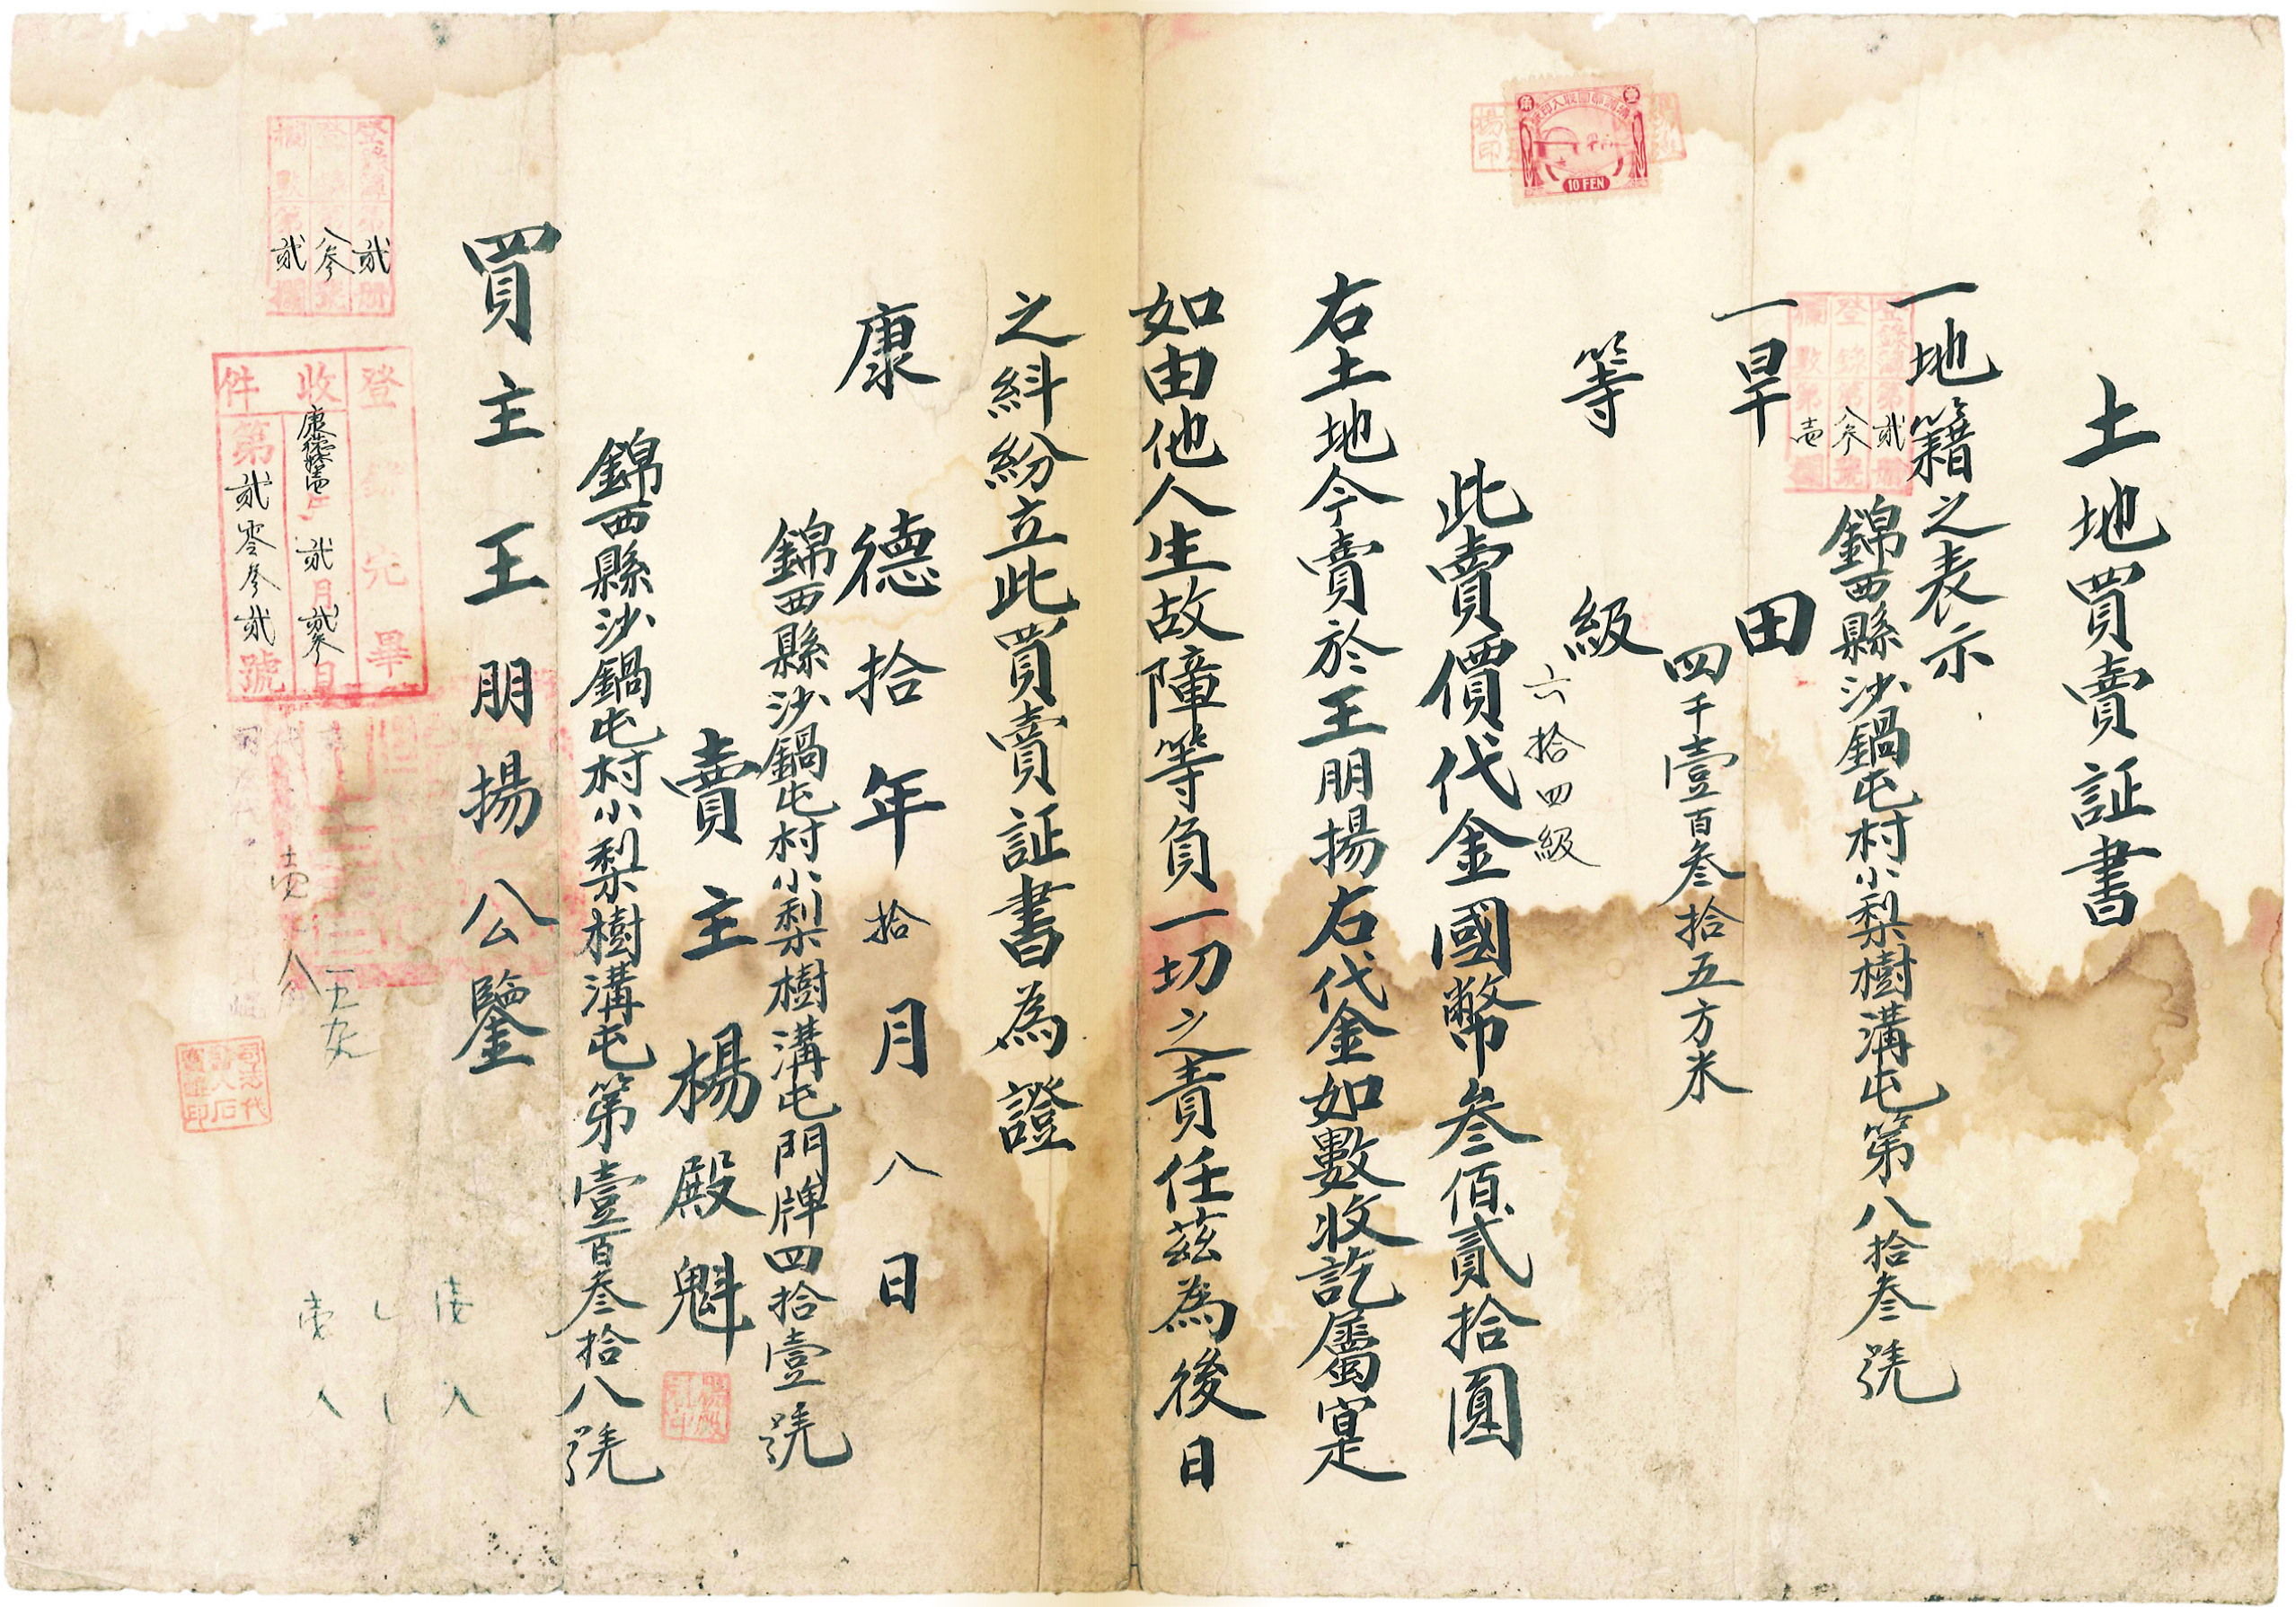 土地買賣証書
一地籍之表示
錦西縣沙鍋屯村小梨樹溝屯第八拾叁號
登錄簿第貳册
登錄第八叁號
欄數第壱欄
一旱田
四千壹百叁拾五方米
等級
六拾四級
此賣價代金國幣叁佰貳拾圓
10 FEN
右土地今賣於王朋揚右代金如數收訖屬寔
如由他人生故障等負一切之責任茲為後日
之糾紛立此買賣証書為證
康德拾年拾月八日
錦西縣沙鍋屯村小梨樹溝屯門牌四拾壹號
賣主楊殿魁
錦西縣沙鍋屯村小梨樹溝屯第壹百叁拾八號
買主王朋揚公鑒
登錄簿第貳册
登錄第八叁號
欄數第貳欄
登錄完畢
收件
康德拾壱年貳月貳叁日
第貳零叁貳號